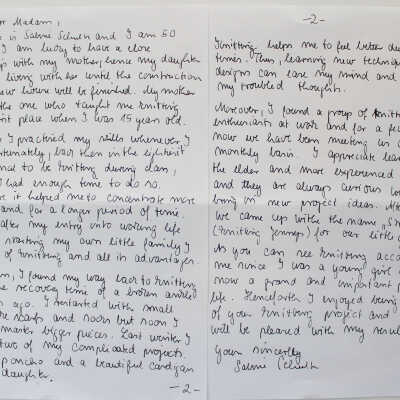 Madam,
is Sabine and I am 50
I am lucky to have a close
with my mother, hence my daughter
living with her until the construction
new house will be finished. My mother
the one who taught me knitting
place when I was 15 years old.
I practised my skills whenever I
back then in the eighties it
to be knitting during class,
had enough time to do so.
it helped me to concentrate more
and for a longer period of time.
after my entry into working life
starting my own little family I
of knitting and all its advantages.
I found my way back to knitting
recovery time of a broken ankle
ago. I restarted with small
scarfs and socks but soon I
master bigger pieces. Last winter I
two of my complicated projects.
poncho and a beautiful cardigan
daughter.
-2-
-2-
Knitting helps me to feel better
times. Thus, learning new
designs can ease my mind and
my troubled thoughts.
Moreover, I found a group of
enthusiasts at work and for a
now we have been meeting on a
monthly basis. I appreciate
the elder and more experienced
and they are always curious
bring in new project ideas.
we came up with the name
(Knitting Jennys) for our little
As you can see knitting
me since I was a young girl
now a grand and important
life. Henceforth I enjoyed being
of your knitting project and
will be pleased with my
Yours sincerely
Sabine